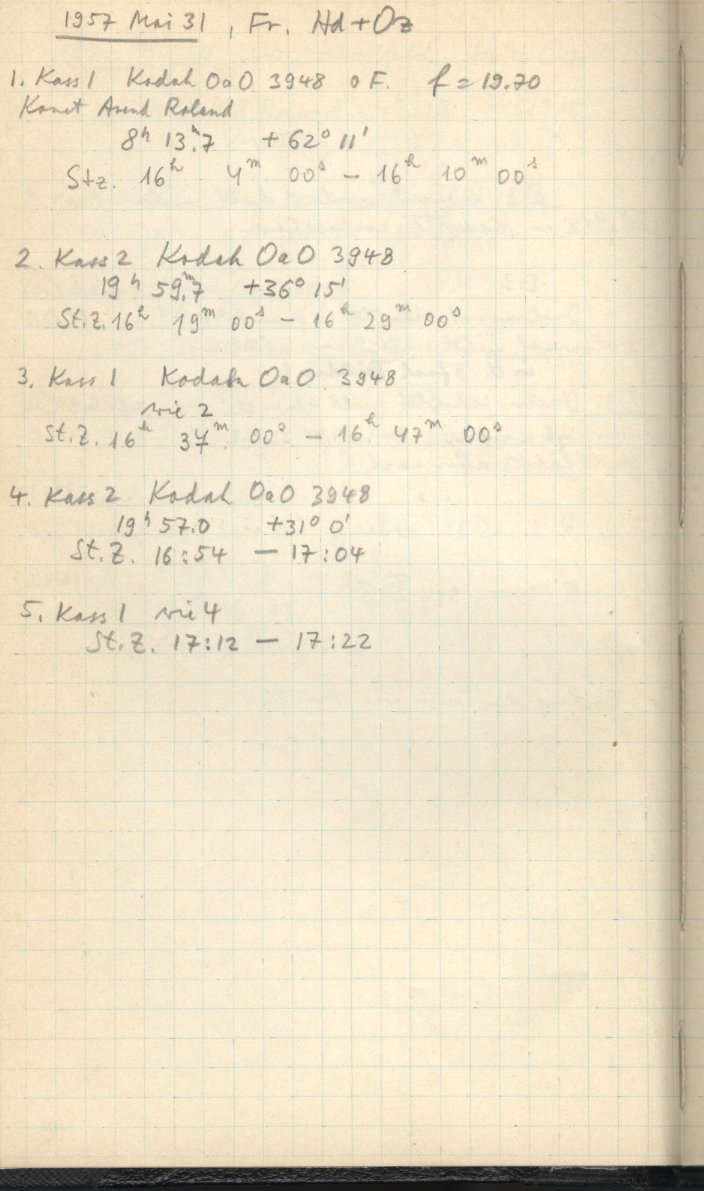 1957 Mai 31, Fr. Hd+Oz
1. Kass 1 Kodak OaO 3948 o F. f = 19.70
Komet Arend Roland
8h 13m.7 +62° 11'
Stz. 16h 4m 00s – 16h 10m 00s
2. Kass 2 Kodak OaO 3948
19h 59m.7 +36° 15'
St.Z. 16h 19m 00s – 16h 29m 00s
3. Kass 1 Kodak OaO 3948
wie 2
St.Z. 16h 37m 00s – 16h 47m 00s
4. Kass 2 Kodak OaO 3948
19h 57.0 +31° 0'
St.Z. 16:54 – 17:04
5. Kass 1 wie 4
St.Z. 17:12 – 17:22